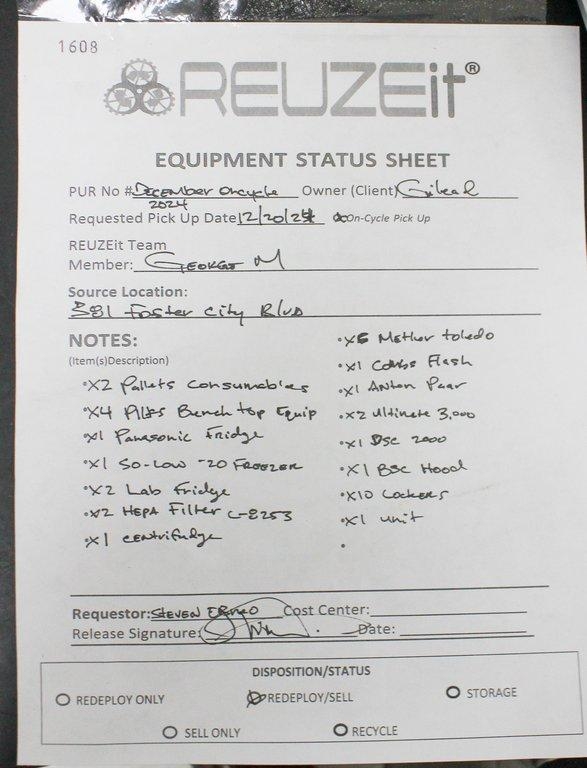 1608
REUZEit®
EQUIPMENT STATUS SHEET
PUR No # December Oncycle 2024 Owner (Client) Gilead
Requested Pick Up Date 12/20/24 On-Cycle Pick Up
REUZEit Team
Member: George M
Source Location:
381 Foster City Blvd
NOTES:
(Item(s)Description)
•X2 Pallets Consumables
•X4 Bench top Equip
•X1 Panasonic Fridge
•X1 So-Low -20 Freezer
•X2 Lab Fridge
•X2 HEPA Filter C-8253
•X1 Centrifudge
•X5 Metler toledo
•X1 Combi Flash
•X1 Anton Paar
•X2 Ultimate 3,000
•X1 DSC 2000
•X1 BSC Hood
•X10 Lockers
•X1 unit
•
Requestor: Steven Cost Center:
Release Signature: Date:
DISPOSITION/STATUS
REDEPLOY ONLY REDEPLOY/SELL STORAGE
SELL ONLY RECYCLE